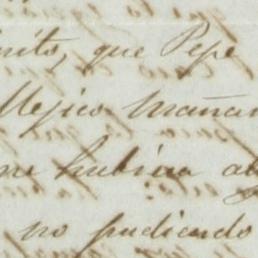 que Pepe
Mejico mañan
me hubiera
no pudiendo